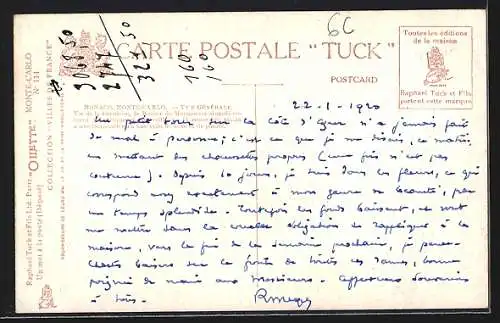 6C
306 850
2
323 50
160
160
CARTE POSTALE "TUCK"
POSTCARD
Toutes les éditions
de la maison
Raphael Tuck et Fils
portent cette marque
Raphael Tuck et Fils Ltd. Paris
Un mot à la poste (Déposé)
"OILETTE"
COLLECTION VILLES DE FRANCE
MONTE-CARLO
N° 134
MONACO, MONTE-CARLO. — VUE GÉNÉRALE.
22-1-1920
Un petit tour sur la côte d'Azur n'a jamais fait
de mal à personne; c'est ce que je me disais, ce matin,
en mettant des chaussettes propres (une fois n'est pas
coutume). Depuis 10 jours, je suis dans les fleurs, ce qui
correspond exactement à mon genre de beauté, par
un temps splendide. Toutefois les fonds baissent, et vont
me mettre dans la cruelle obligation de rappliquer à la
maison, vers la fin de la semaine prochaine, je pense.
Chastes baisers sur le front de toutes ces dames, bonne
poignée de main aux Messieurs. Affectueux Souvenirs
à tous.